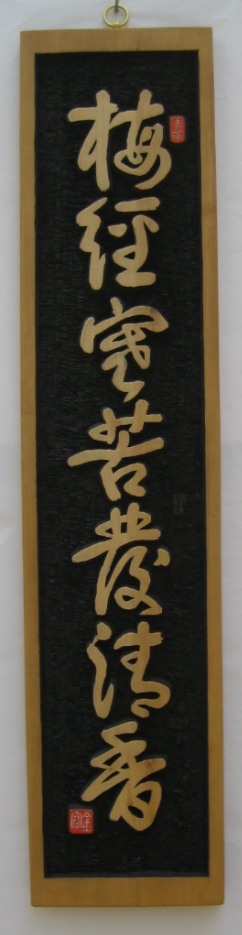 梅經寒苦發清香